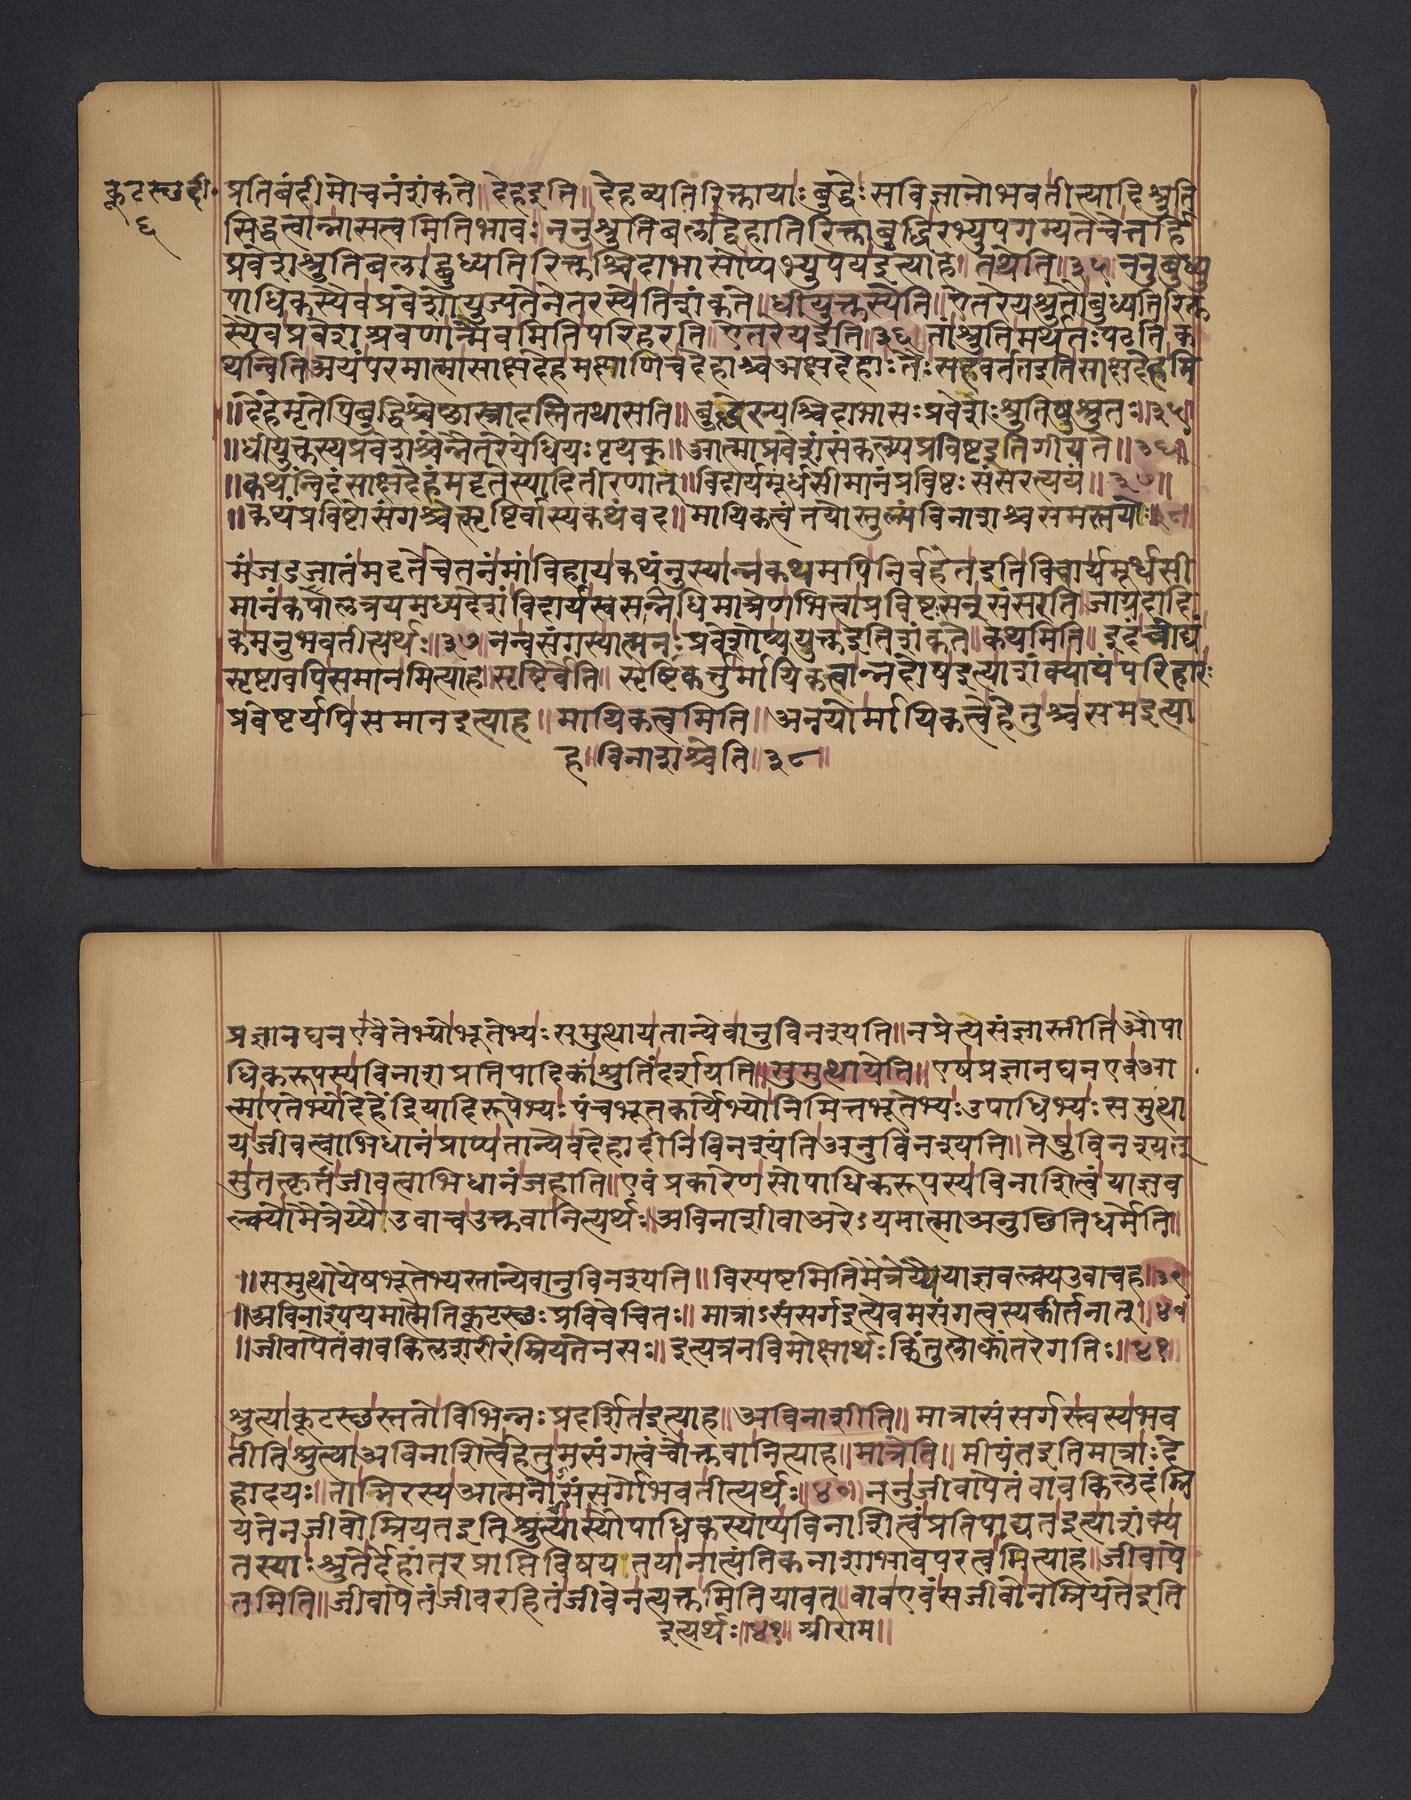 कूटस्थदी॰
६
प्रतिबंदीमोचनंशंकते॥देहइति॥देहव्यतिरिक्तायाःबुद्धेःसविज्ञानोभवतीत्यादिश्रुति
सिद्धत्वान्नासत्वमितिभावः॥ननुश्रुतिबलाद्देहातिरिक्ताबुद्धिरभ्युपगम्यतेचेत्तर्हि
प्रवेशश्रुतिबलाद्बुध्यतिरिक्तश्चिदाभासोप्यभ्युपेयइत्याह॥तथेति॥३५ननुबुध्यु
पाधिकस्यैवप्रवेशोयुज्यतेनेतरस्येतिशंकते॥धीयुक्तस्येति॥ऐतरेयश्रुतौबुध्यतिरिक्त
स्यैवप्रवेशश्रवणान्मैवमितिपरिहरति॥ऐतरेयइति॥३६॥तांश्रुतिमर्थतःपठतिक
थन्विति॥अयंपरमात्मासाक्षदेहमक्षाणिचदेहाश्चअक्षदेहाःतैःसहवर्ततइतिसाक्षदेहमि
॥देहेमृतेपिबुद्धिश्चेछास्त्रादस्तितथासति॥बुद्धेरन्यश्चिदाभासःप्रवेशःश्रुतिषुश्रुतः॥३५॥
॥धीयुक्तस्यप्रवेशश्चेन्नैतरेयेधियःपृथक्॥आत्माप्रवेशंसंकल्प्यप्रविष्टइतिगीयते॥३६॥
॥कथंन्विदंसाक्षदेहंमदृतेस्यादितीरणात्॥विदार्यमूर्धसीमानंप्रविष्टःसंसरत्ययं॥३७॥
॥कथंप्रविष्टोसंगश्चेत्सृष्टिर्वास्यकथंवद॥मायिकत्वंतयोस्तुल्यंविनाशश्चसमस्तयोः॥३८॥
मंजडजातंमदृतेचेतनंमांविहायकथंनुस्यान्नकथमपिनिर्वहेतइतिविचार्यमूर्धसी
मानंकपालत्रयमध्यदेशंविदार्यस्वसन्निधिमात्रेणभित्वाप्रविष्टःसन्संसरति॥जाग्रदादि
कमनुभवतीत्यर्थः॥३७॥नन्वसंगस्यात्मनःप्रवेशोप्ययुक्तइतिशंकते॥कथमिति॥इदंचोद्यं
सृष्टावपिसमानमित्याह॥सृष्टिर्वेति॥सृष्टिकर्त्तुर्मायिकत्वान्नदोषइत्याशंक्यायंपरिहारः
प्रवेष्टर्यपिसमानइत्याह॥मायिकत्वमिति॥अनयोर्मायिकत्वेहेतुश्चसमइत्या
ह॥विनाशश्चेति॥३८॥
प्रज्ञानघनएवैतेभ्योभूतेभ्यःसमुत्थायतान्येवानुविनश्यति॥नप्रेत्यसंज्ञास्तीतिऔपा
धिकरूपस्यविनाशप्रतिपादिकांश्रुतिंदर्शयति॥समुत्थायेति॥एषप्रज्ञानघनएवआ
त्माएतेभ्योदेहेंद्रियादिरूपेभ्यःपंचभूतकार्येभ्योनिमित्तभूतेभ्यःउपाधिभ्यःसमुत्था
यजीवत्वाभिधानंप्राप्यतान्येवदेहादीनिविनश्यंतिअनुविनश्यति॥तेषुविनश्यत्
सुतत्कृतंजीवत्वाभिधानंजहाति॥एवंप्रकारेणसोपाधिकरूपस्यविनाशित्वंयाज्ञव
ल्क्योमैत्रेय्यैउवाचउक्तवानित्यर्थः॥अविनाशीवाअरेऽयमात्माअनुछित्तिधर्मेति॥
॥समुत्थायेषभूतेभ्यस्तान्येवानुविनश्यति॥विस्पष्टमितिमैत्रेय्यैयाज्ञवल्क्यउवाचह॥३९
॥अविनाश्ययमात्मेतिकूटस्थःप्रविवेचितः॥मात्राऽसंसर्गइत्येवमसंगत्वस्यकीर्तनात्॥४०॥
॥जीवापेतंवावकिलशरीरंम्रियतेनसः॥इत्यत्रनविमोक्षार्थःकिंतुलोकांतरेगतिः॥४१॥
श्रुत्याकूटस्थस्ततोविभिन्नःप्रदर्शितइत्याह॥अविनाशीति॥मात्रासंसर्गस्त्वस्यभव
तीतिश्रुत्याअविनाशित्वेहेतुमसंगत्वंचोक्तवानित्याह॥मात्रेति॥मीयंतइतिमात्राःदे
हादयः॥ताभिरस्यआत्मनोऽसंसर्गोभवतीत्यर्थः॥४०॥ननुजीवापेतंवावकिलेदंम्रि
यतेनजीवोम्रियतइतिश्रुत्यास्यौपाधिकस्याप्यविनाशित्वंप्रतिपाद्यतइत्याशंक्य
तस्याःश्रुतेर्देहांतरप्राप्तिविषयतयानात्यंतिकनाशाभावपरत्वमित्याह॥जीवापे
तमिति॥जीवापेतंजीवरहितंजीवेनत्यक्तमितियावत्॥वावएवंसजीवोनम्रियतेइति
इत्यर्थः॥४१॥श्रीराम॥